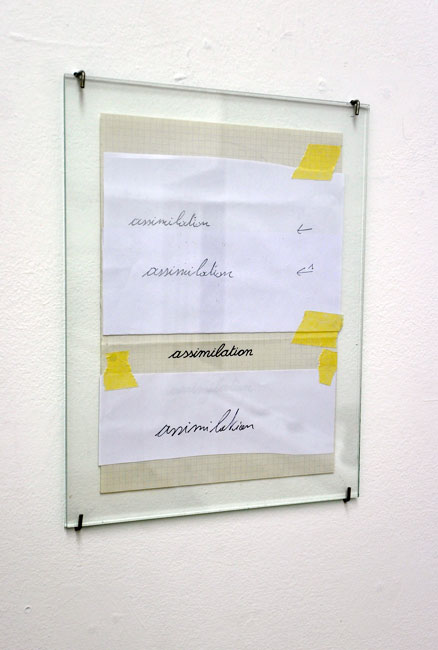 assimilation
assimilation
assimilation
assimilation